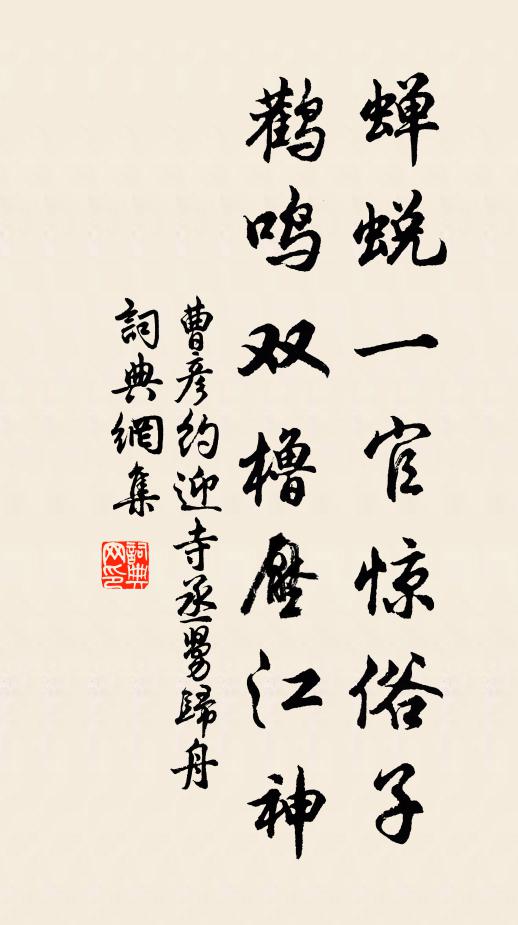 蝉蜕一官惊俗子
鹳鸣双橹压江神
曹彦约迎寺丞舅歸舟
詞典網集
詞典网印